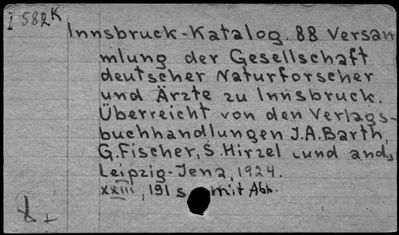 I 582K
Innsbruck-Katalog. 88 Versam
mlung der Gesellschaft
deutscher Naturforscher
und Ärzte zu Innsbruck.
Überreicht von den Verlags-
buchhandlungen J.A. Barth,
G. Fischer, S. Hirzel und and.
Leipzig-Jena, 1924.
XXIII, 191 s. mit Abh.